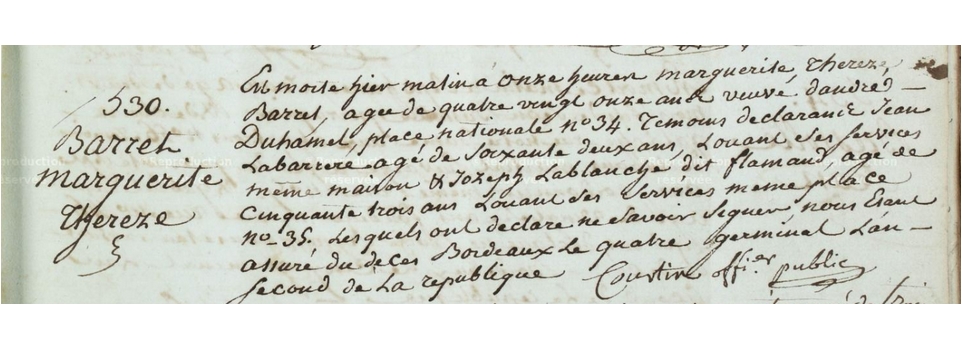 530.
Barret
marguerite
Thereze
Est morte hier matin a onze heures marguerite Thereze,
Barret, agee de quatre vingt onze ans veuve d'andré –
Duhamel, place nationale n° 34. Temoins declarans Jean
Labarrere, agé de soixante deux ans, Louant ses services
même maison & Jozeph Lablanche, dit flamand, agé de
Cinquante trois ans Louant ses services meme place
n° 35. Lesquels ont declare ne savoir signer nous Etant
assuré du déces Bordeaux Le quatre germinal L'an –
second de La republique Coustin offi.er public
Reproduction
réservée